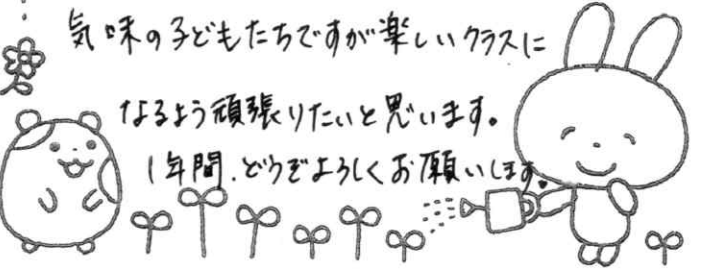 気味の子どもたちですが楽しいクラスに
なるよう頑張りたいと思います。
1年間、どうぞよろしくお願いします。